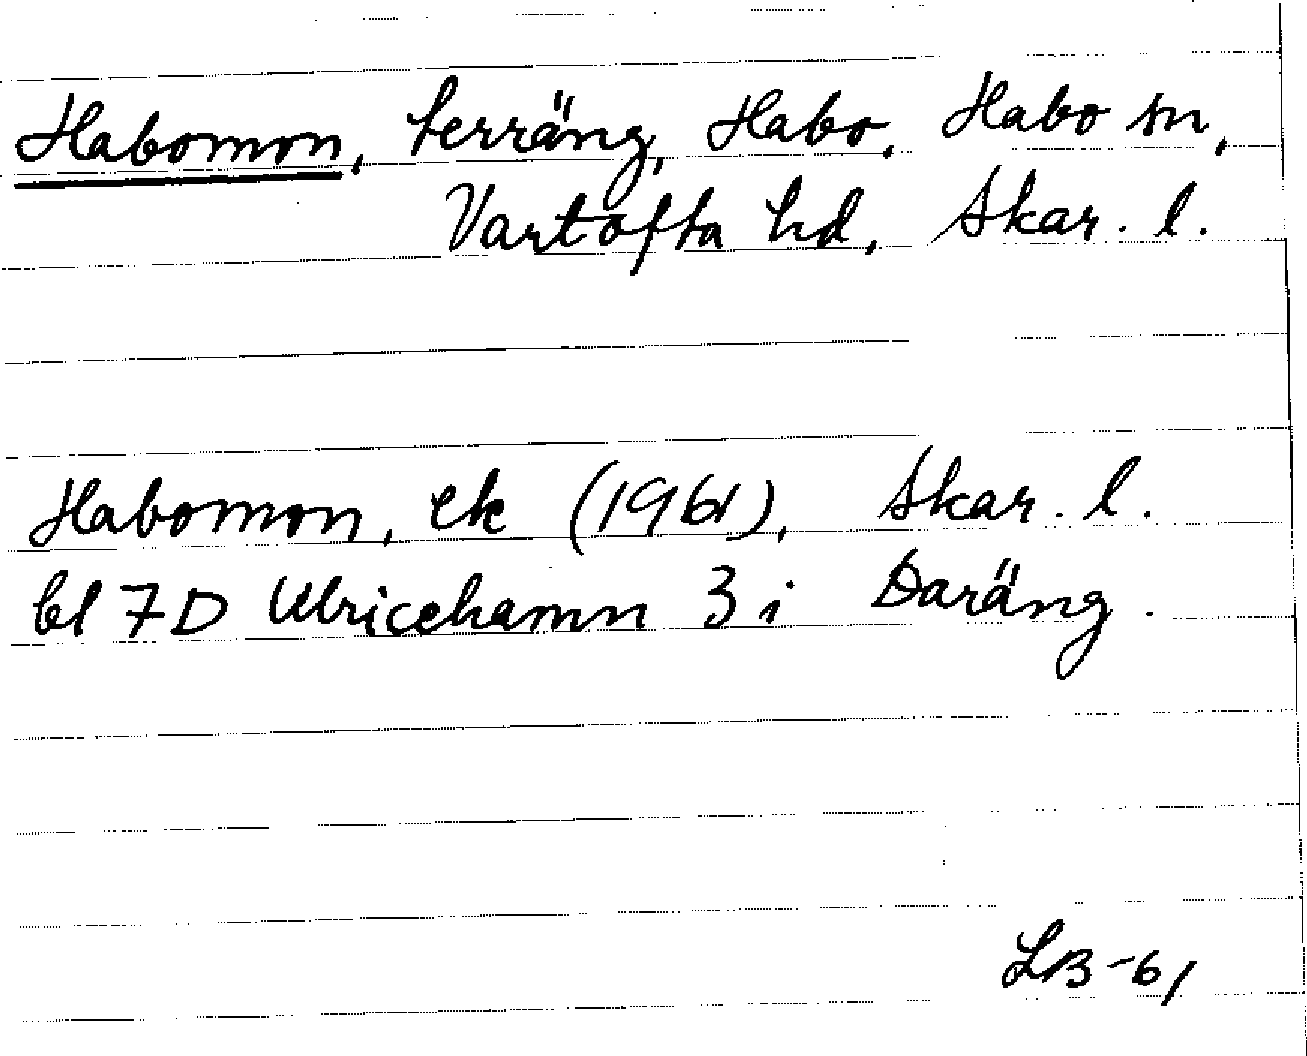 Habomon, terräng, Habo, Habo sn,
Vartofta hd, Skar. l.
Habomon, ek (1961), Skar. l.
bl 7D Ulricehamn 3 i Daräng.
LB-61